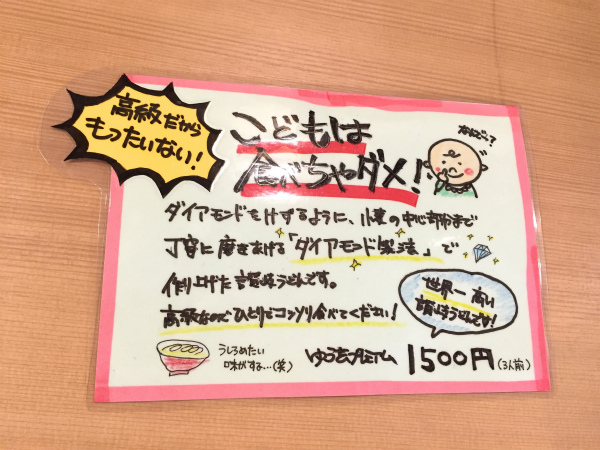 高級だから
もったいない!
こどもは
食べちゃダメ!
なんで〜?
ダイアモンドをけずるように、小麦の中心部分まで
丁寧に磨きあげる「ダイアモンド製法」で
作り上げた讃岐うどんです。
高級なのでひとりでコッソリ食べてください!
世界一高い
讃岐うどんです!
うしろめたい
味がする…(笑)
プレミアム
1500円(3人前)